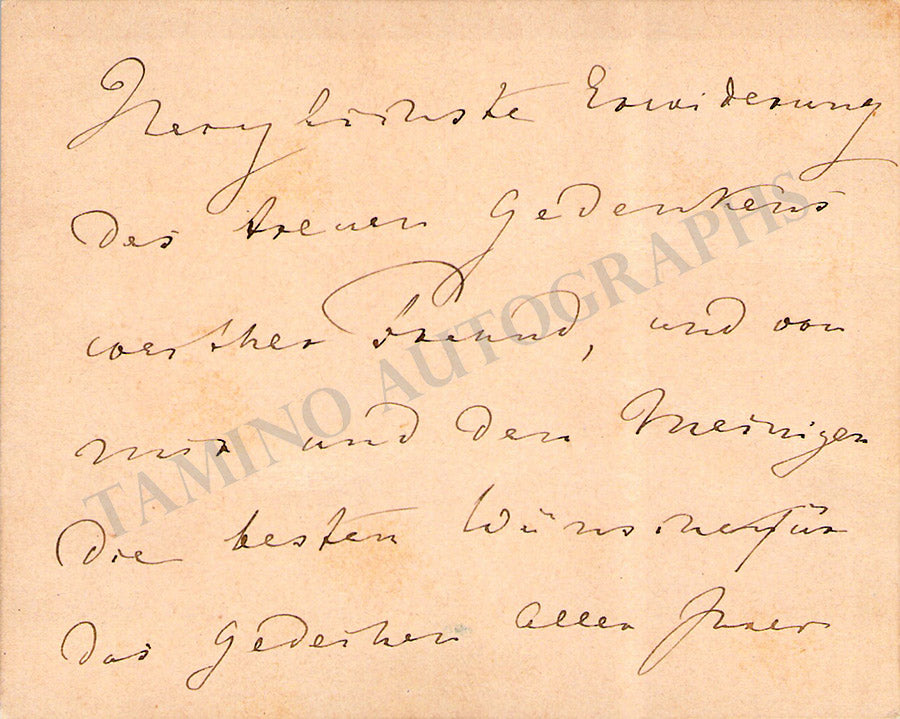 Herzlichste Erwiderung
des treuen Gedenkens
werther Freund, und von
mir und den Meinigen
die besten Wünsche für
das Gedeihen aller Ihrer
TAMINO AUTOGRAPHS